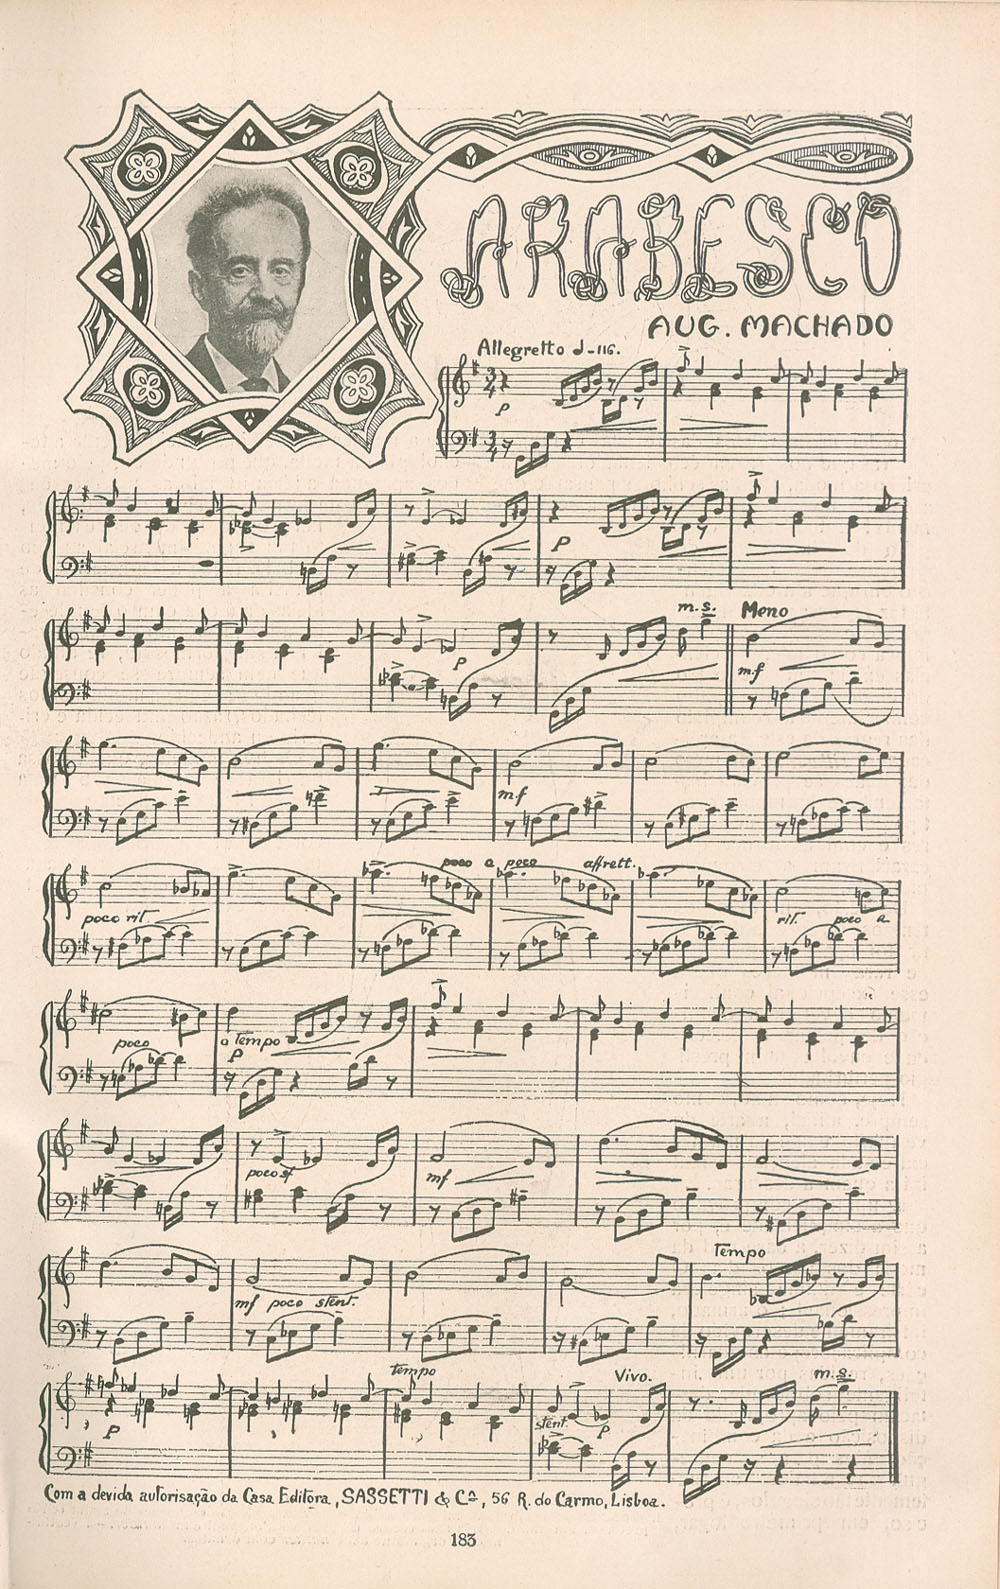 ARABESCO
AUG. MACHADO
Allegretto ♩-116.
3/4
p
3/4
p
m.s.
Meno
p
m.f
m.f
poco a poco affrett.
poco rit
rit. poco a
poco
a Tempo
p
poco sf
mf
Tempo
mf poco stent.
tempo
Vivo.
m.s.
p
stent.
p
Com a devida autorisação da Casa Editora, SASSETTI & Cª, 56 R. do Carmo, Lisboa.
183